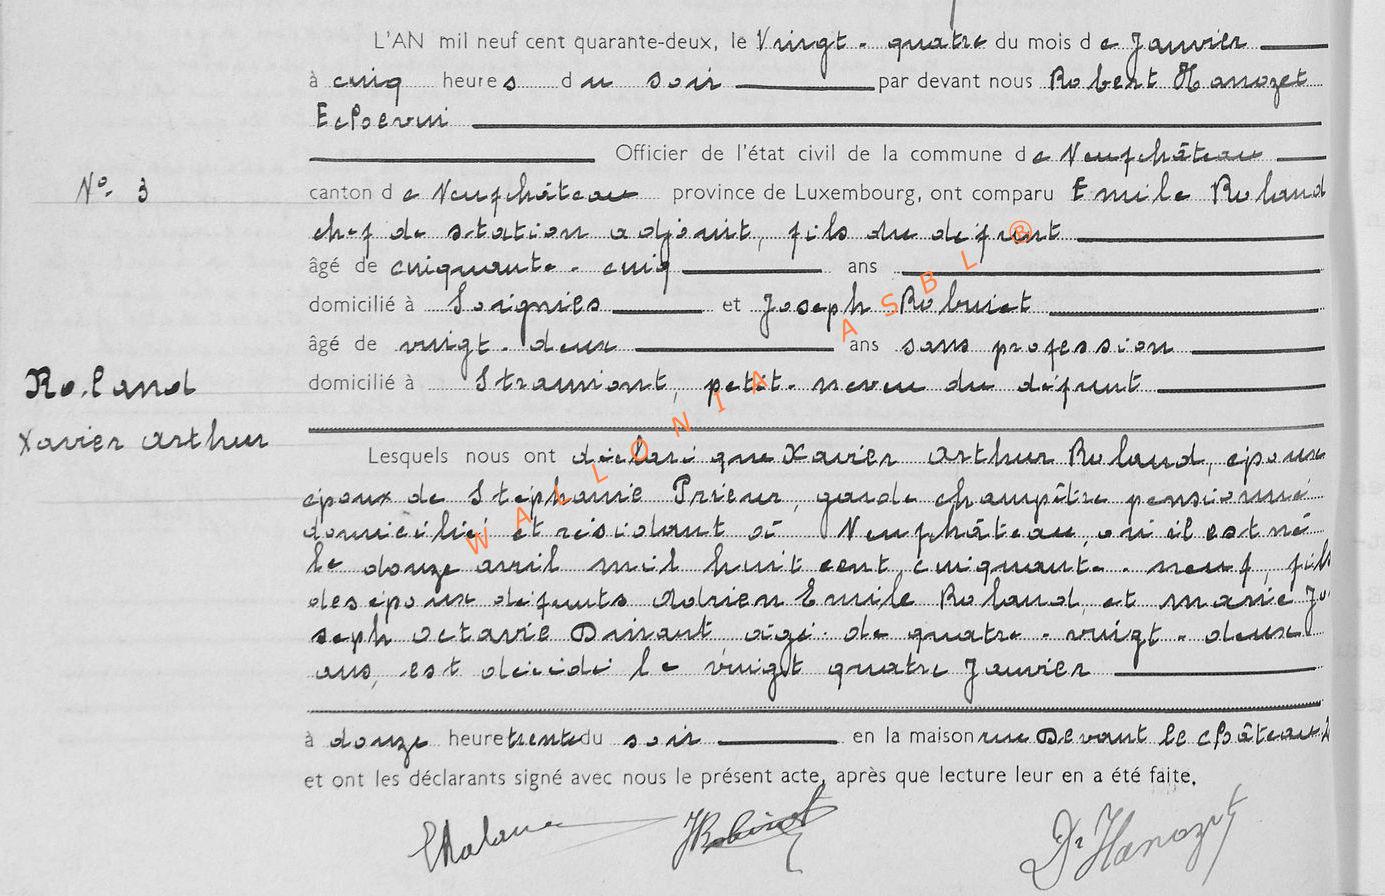 L'AN mil neuf cent quarante-deux, le Vingt-quatre du mois de Janvier
à cinq heures du soir par devant nous Robert Hanozet
Echevin
Officier de l'état civil de la commune de Neufchâteau
N°- 3
canton de Neufchâteau province de Luxembourg, ont comparu Emile Roland
chef de station adjoint, fils du défunt
âgé de cinquante-cinq ans
domicilié à Soignies et Joseph Robinet
âgé de vingt-deux ans sans profession
domicilié à Straimont, petit-neveu du défunt
Roland
Xavier Arthur
Lesquels nous ont déclaré que Xavier Arthur Roland, époux
époux de Stéphanie Prieur, garde champêtre pensionné
domicilié et résidant à Neufchâteau, où il est né
le douze avril mil huit cent cinquante-neuf, fils
des époux défunts Adrien Emile Roland, et Marie Jo
seph Octavie Dinant âgé de quatre-vingt-deux
ans, est décédé le vingt quatre Janvier
à douze heure trente du soir en la maison rue Devant le château 2
et ont les déclarants signé avec nous le présent acte, après que lecture leur en a été faite.
ERoland JRobinet Dr Hanozet
WALLONIA ASBL ®